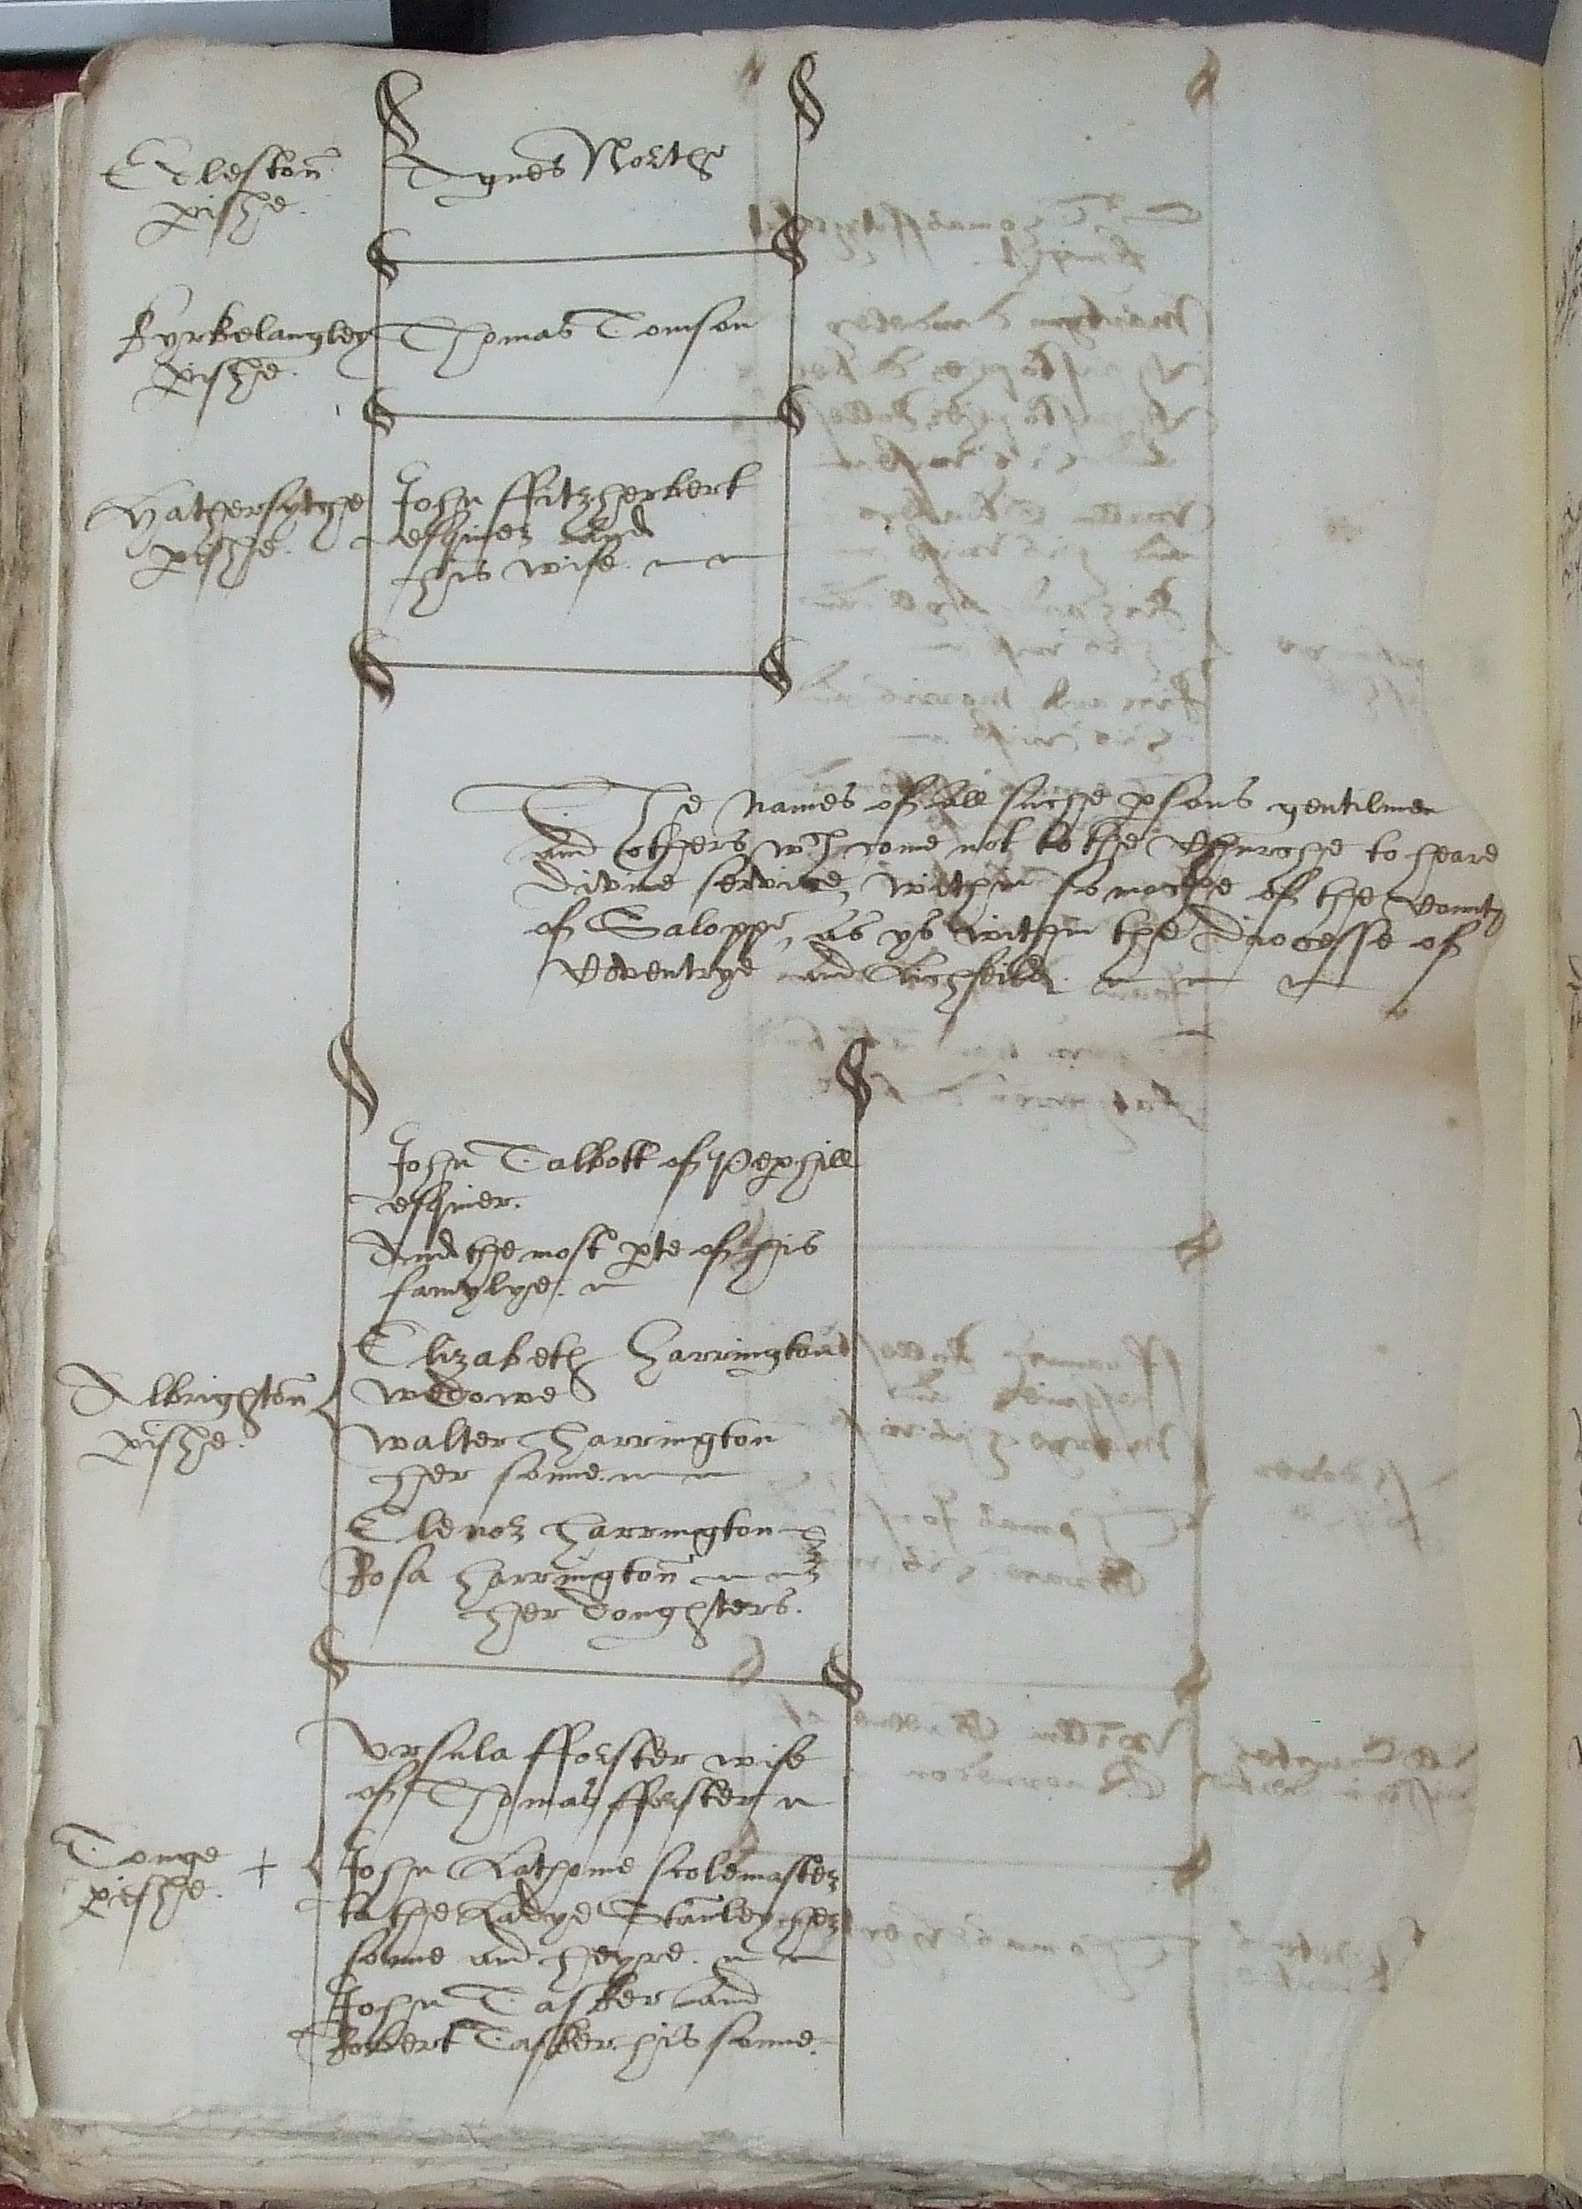 Egleston
pishe.
Agnes North
Kyrkelangley
pishe.
Thomas Tomson
Hathersytche
pishe.
John ffitzherbert
esquier and
his wife
The names of all suche psons gentilmen
and others wch come not to the Churche to heare
divine service, within so moche of the County
of Saloppe, as ys within the Diocesse of
Coventrye and Lichfeild
John Talbott of Pephill
esquier.
And the most pte of his
famylye.
Albrighton
pishe.
Elizabeth Harrington
wedowe
Walter Harrington
her sonne
Elenor Harrington
Rosa Harrington
her doughters.
Tonge
pishe.
+
Ursula fforster wife
of Thomas fforster
John Lathome scolemaster
to the Ladye Stanley her
sonne and heyre.
John Tasker and
Robert Tasker his sonne.